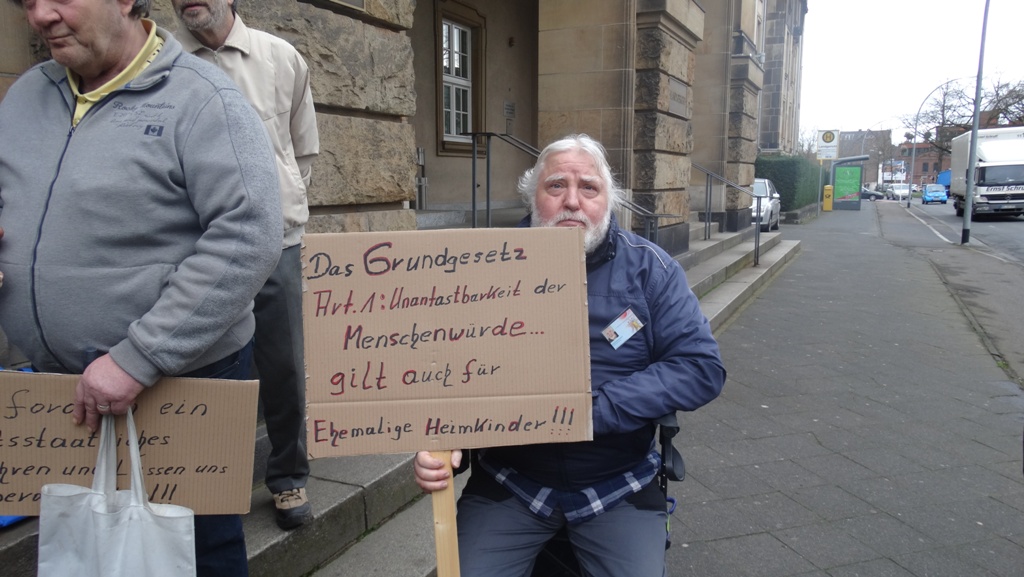 Das Grundgesetz
Art. 1: Unantastbarkeit der
Menschenwürde...
gilt auch für
Ehemalige Heimkinder!!!
ein
sstaatliches
hren und Lassen uns
!!!
Ernst